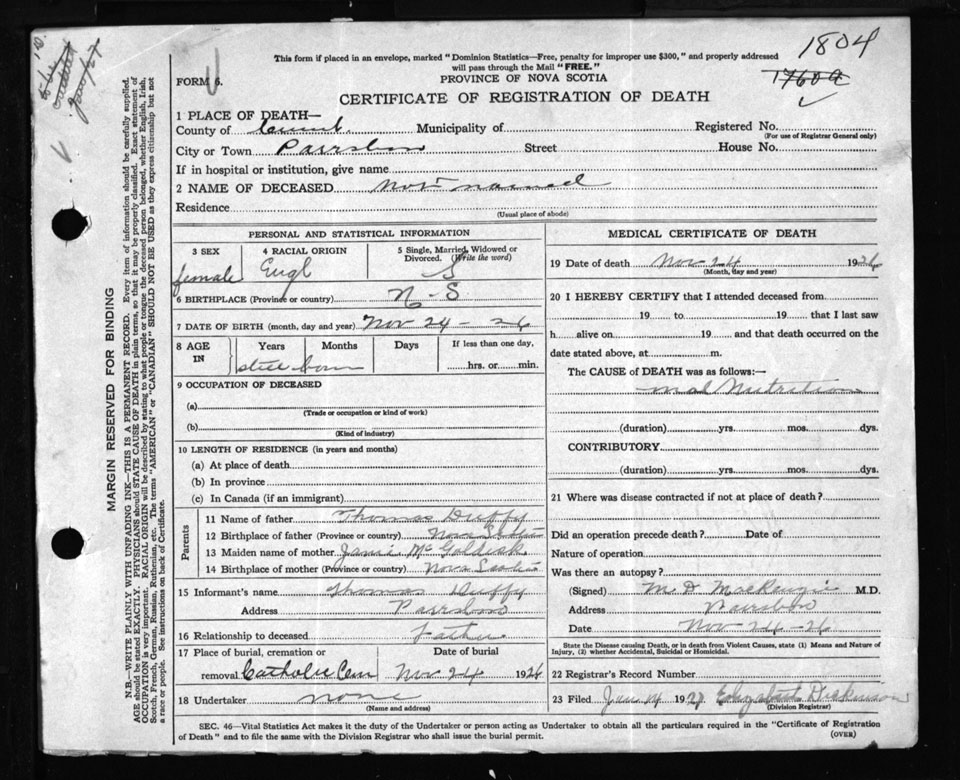 1804
This form if placed in an envelope, marked "Dominion Statistics—Free, penalty for improper use $300," and properly addressed
will pass through the Mail "FREE."
17604
FORM 6.
PROVINCE OF NOVA SCOTIA
CERTIFICATE OF REGISTRATION OF DEATH
1 PLACE OF DEATH—
County of Cumb. Municipality of Registered No.
(For use of Registrar General only)
City or Town Parrsboro Street House No.
If in hospital or institution, give name
2 NAME OF DECEASED not named
Residence
(Usual place of abode)
PERSONAL AND STATISTICAL INFORMATION
3 SEX 4 RACIAL ORIGIN 5 Single, Married, Widowed or
Divorced. (Write the word)
female Engl S
6 BIRTHPLACE (Province or country) N-S
7 DATE OF BIRTH (month, day and year) Nov 24 - 26
8 AGE IN Years Months Days If less than one day,
still born hrs. or min.
9 OCCUPATION OF DECEASED
(a)
(Trade or occupation or kind of work)
(b)
(Kind of industry)
10 LENGTH OF RESIDENCE (in years and months)
(a) At place of death
(b) In province
(c) In Canada (if an immigrant)
Parents
11 Name of father Thomas Duffy
12 Birthplace of father (Province or country) Nova Scotia
13 Maiden name of mother Janie McGoldrick
14 Birthplace of mother (Province or country) Nova Scotia
15 Informant's name Thomas Duffy
Address Parrsboro
16 Relationship to deceased Father
17 Place of burial, cremation or Date of burial
removal Catholic Cem Nov 24 1926
18 Undertaker none
(Name and address)
MEDICAL CERTIFICATE OF DEATH
19 Date of death Nov 24 1926
(Month, day and year)
20 I HEREBY CERTIFY that I attended deceased from
19 to 19 that I last saw
h alive on 19 and that death occurred on the
date stated above, at m.
The CAUSE of DEATH was as follows:—
mal Nutrition
(duration) yrs. mos. dys.
CONTRIBUTORY
(duration) yrs. mos. dys.
21 Where was disease contracted if not at place of death?
Did an operation precede death? Date of
Nature of operation
Was there an autopsy?
(Signed) M. D. MacKenzie M.D.
Address Parrsboro
Date Nov-24-26
State the Disease causing Death, or in death from Violent Causes, state (1) Means and Nature of
Injury, (2) whether Accidental, Suicidal or Homicidal.
22 Registrar's Record Number
23 Filed Jan 14 1927 Elizabeth Dickinson
(Division Registrar)
SEC. 46—Vital Statistics Act makes it the duty of the Undertaker or person acting as Undertaker to obtain all the particulars required in the "Certificate of Registration
of Death" and to file the same with the Division Registrar who shall issue the burial permit.
(OVER)
MARGIN RESERVED FOR BINDING
N.B.—WRITE PLAINLY WITH UNFADING INK—THIS IS A PERMANENT RECORD. Every item of information should be carefully supplied.
AGE should be stated EXACTLY. PHYSICIANS should STATE CAUSE OF DEATH in plain terms, so that it may be properly classified. Exact statement of
OCCUPATION is very important. RACIAL ORIGIN will be described by stating to what people or tongue the deceased person belonged, whether English, Irish,
Scotch, French, German, Russian, Ruthenian, etc. The terms "AMERICAN" or "CANADIAN" SHOULD NOT BE USED as they express citizenship but not
a race or people. See instructions on back of Certificate.